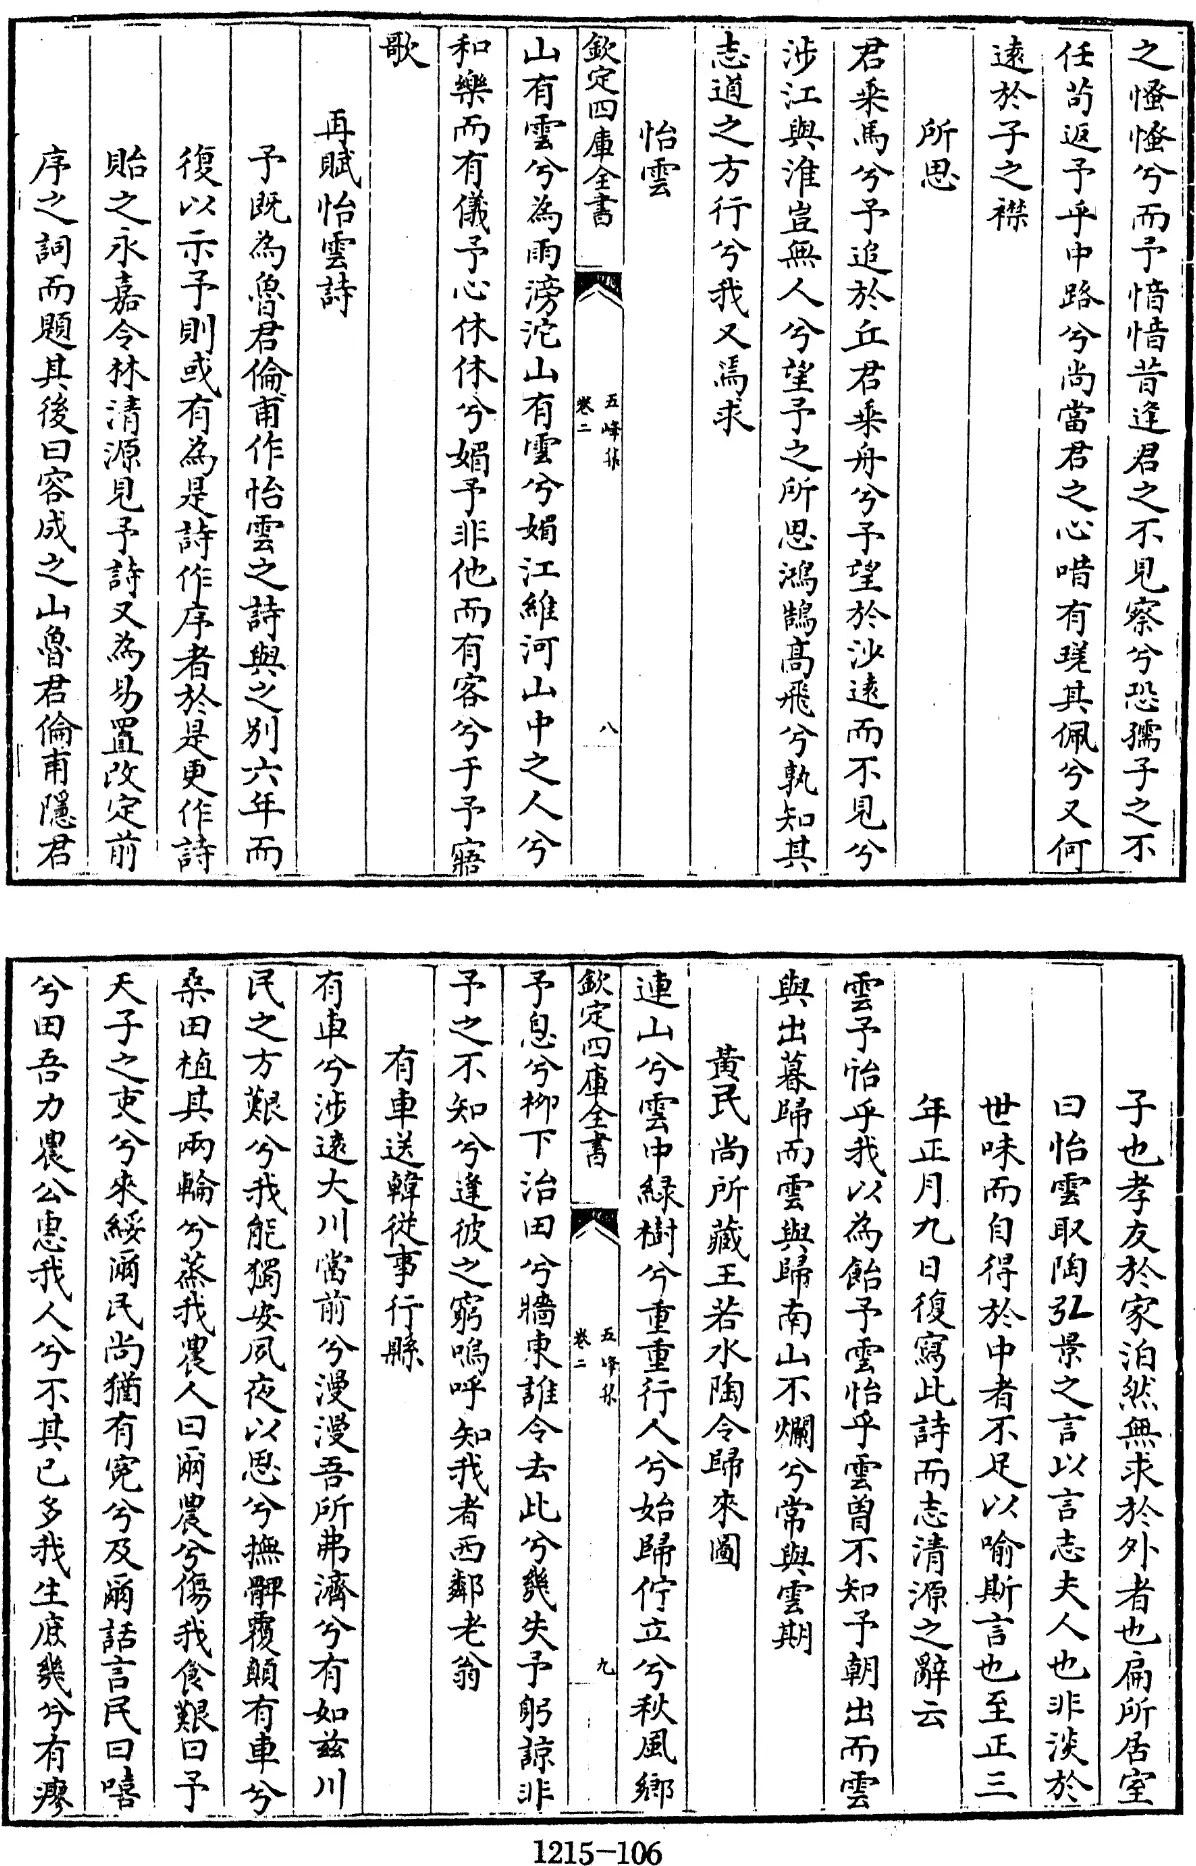 之慅慅兮而予愔愔昔逢君之不見察兮恐孺子之不
任苟返予乎中路兮尚當君之心唶有瑳其佩兮又何
逺於子之襟
所思
君乗馬兮予追於丘君乗舟兮予望於沙逺而不見兮
涉江與淮豈無人兮望予之所思鴻鵠髙飛兮孰知其
志道之方行兮我又焉求
怡雲
欽定四庫全書
五峰集
卷二
八
山有雲兮為雨滂沱山有雲兮媚江維河山中之人兮
和樂而有儀予心休休兮媚予非他而有客兮于予寤
歌
再賦怡雲詩
予既為魯君倫甫作怡雲之詩與之别六年而
復以示予則或有為是詩作序者於是更作詩
貽之永嘉令林清源見予詩又為易置改定前
序之詞而題其後曰容成之山魯君倫甫隱君
子也孝友於家泊然無求於外者也扁所居室
曰怡雲取陶弘景之言以言志夫人也非淡於
世味而自得於中者不足以喻斯言也至正三
年正月九日復寫此詩而志清源之辭云
雲予怡乎我以為飴予雲怡乎雲曽不知予朝出而雲
與出暮歸而雲與歸南山不爛兮常與雲期
黄民尚所藏王若水陶令歸來圖
連山兮雲中緑樹兮重重行人兮始歸佇立兮秋風鄉
欽定四庫全書
五峰集
卷二
九
予息兮柳下治田兮牆東誰令去此兮幾失予躬諒非
予之不知兮逢彼之窮嗚呼知我者西鄰老翁
有車送韓從事行縣
有車兮涉逺大川當前兮漫漫吾所弗濟兮有如兹川
民之方艱兮我能獨安夙夜以思兮撫髀覆顛有車兮
桑田植其兩輪兮蒸我農人曰爾農兮傷我食艱曰予
天子之吏兮來綏爾民尚猶有寃兮及爾話言民曰嘻
兮田吾力農公惠我人兮不其已多我生庶幾兮有瘳
1215-106